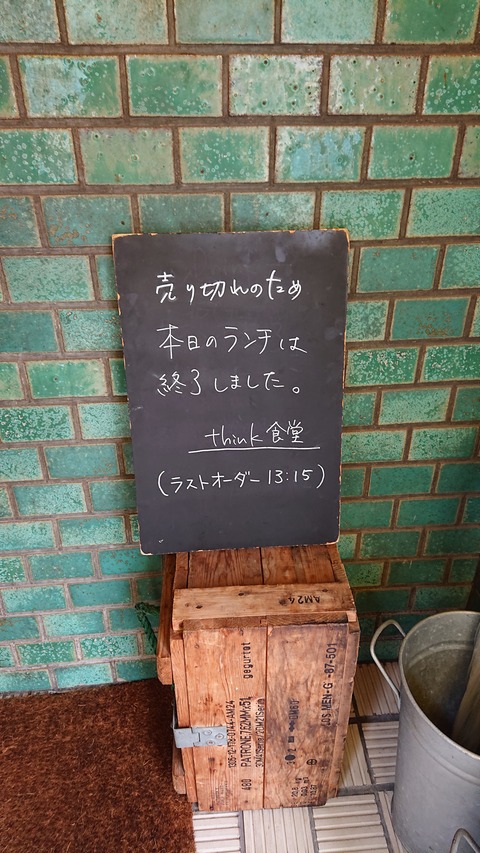 売り切れのため
本日のランチは
終了しました。
think食堂
(ラストオーダー 13:15)
AM24
gegurtet
1305-12-118-0144-AM24
PATRONE 7,62MMx51
480